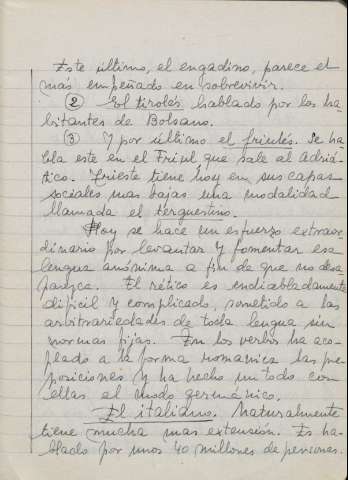 Este último, el engadino, parece el
más empeñado en sobrevivir.
② El tirolés hablado por los ha-
bitantes de Bolsano.
③ Y por último el friulés. Se ha-
bla este en el Friul que sale al Adriá-
tico. Trieste tiene hoy en sus capas
sociales mas bajas una modalidad
llamada el terguestino.
Hoy se hace un esfuerzo extraor-
dinario por levantar y fomentar esa
lengua anónima a fin de que no desa-
parezca. El rético es endiabladamente
difícil y complicado, sometido a las
arbitrariedades de toda lengua sin
normas fijas. En los verbos ha aco-
plado a la forma romanica las pre-
posiciones y ha hecho un todo con
ellas al modo germánico.
El italiano. Naturalmente
tiene mucha mas extensión. Es ha-
blado por unos 40 millones de personas.